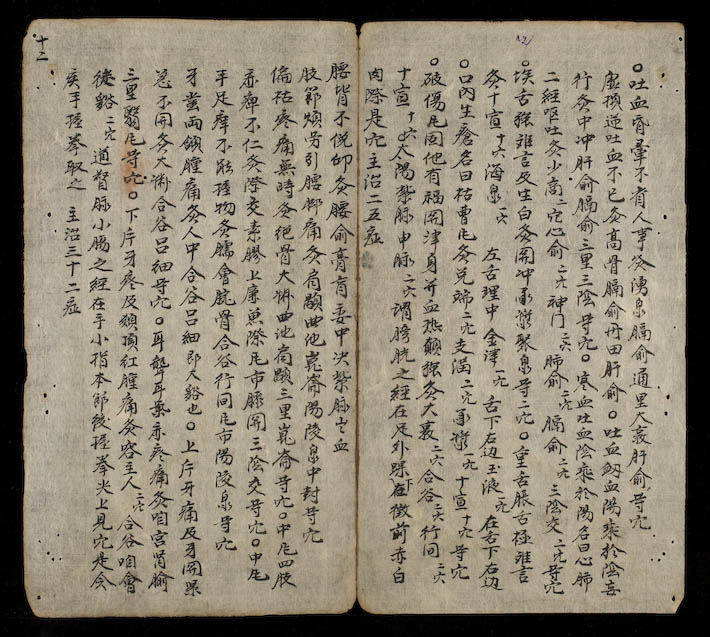 十二
○吐血昏暈不省人事灸湧泉膈俞通里大衰肝俞等穴
虚損逆吐血不已灸高骨膈俞丹田肝俞○吐血衂血陽乘於陰妄
行灸中冲肝俞膈俞三里三陰等穴○寒血吐血陰乘於陽名曰心肺
二經嘔吐灸少商二穴心俞二穴神门二穴肺俞二穴膈俞二穴三陰交二穴等穴
○唉舌強难言及生白灸関冲承漿聚泉等穴二穴○重舌脹舌極难言
灸十宣十穴海泉一穴 左舌理中金津一穴 舌下右边玉液一穴 在舌下右边
○口内生瘡名曰枯曹尾灸兌端二穴支溝二穴承漿一穴十宣十穴等穴
○破傷尾因他有禍関津身并血热顛強灸大衰二穴合谷二穴行间二穴
十宣十穴太陽紮脉申脉二穴謂膀胱之經在足外踝下徴前赤白
肉際是穴主治二五症
腰背不悦仰灸腰俞膏肓委中决紮脉出血
肢節煩劳引腰脚痛灸肩顒曲池崑崙陽陵泉中封等穴
偏祜疼痛無時灸绝骨大淵曲池肩顒三里崑崙等穴○中尾四肢
麻痺不仁灸際交素髎上廉魚際尾市膝関三陰交等穴○中尾
手足痒不能握物灸臑會腕骨合谷行间尾市陽陵泉等穴
牙萱两頷腫痛灸人中合谷吕细即大谿也○上片牙痛及牙関
急不開灸大淵合谷吕细等穴○耳聾耳亦疼痛灸咱宫肾俞
三里翳尾等穴○下片牙疼及頰項红腫痛灸容主人二穴合谷咱會
後谿二穴道督脉小腸之經在手小指本節後握拳尖上見穴是灸
疾手握拳取之 主治三十二症